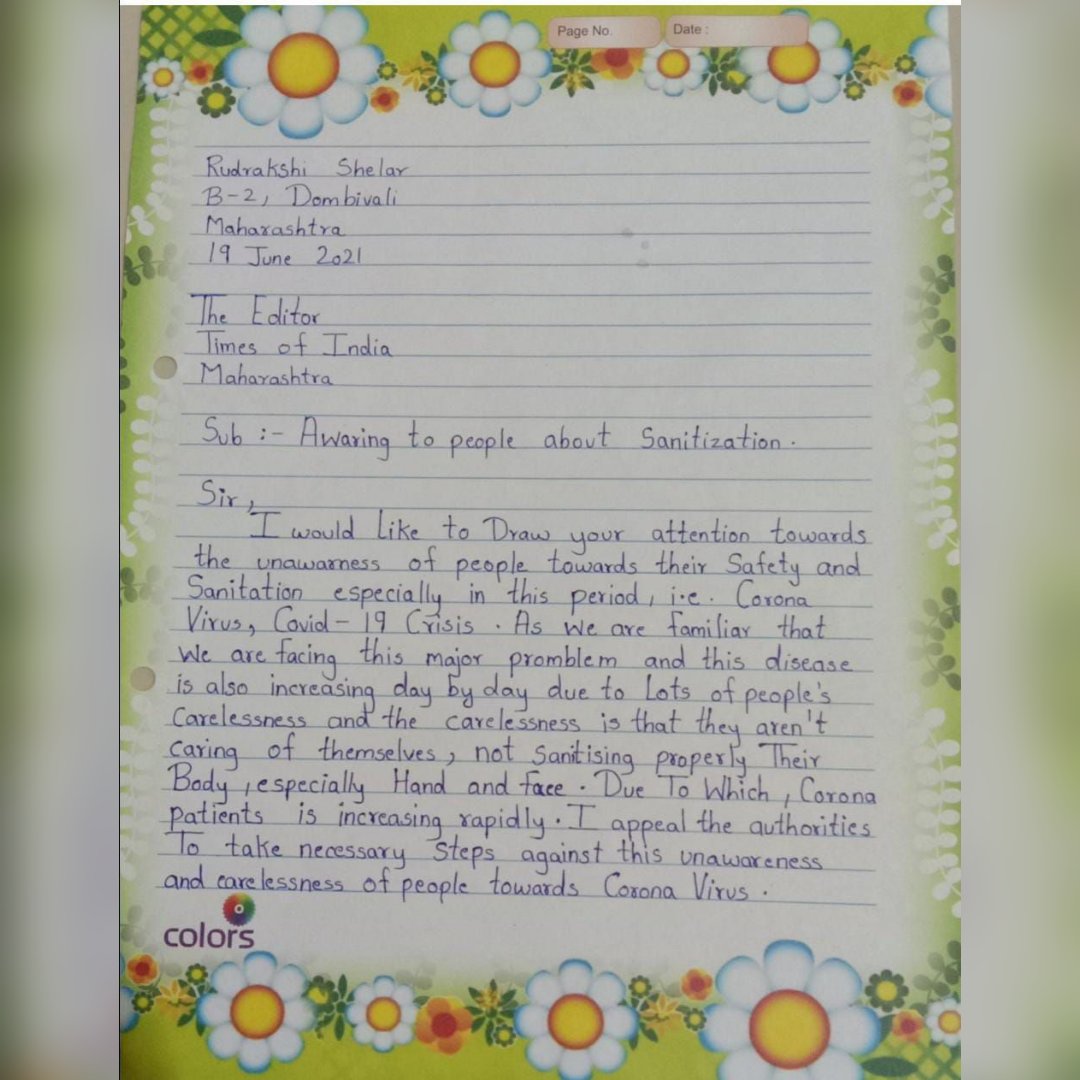 Page No.
Date :
Rudrakshi Shelar
B-2, Dombivali
Maharashtra
19 June 2021
The Editor
Times of India
Maharashtra
Sub :- Awaring to people about Sanitization.
Sir,
I would like to Draw your attention towards
the unawarness of people towards their Safety and
Sanitation especially in this period, i.e. Corona
Virus, Covid-19 Crisis. As we are familiar that
we are facing this major promblem and this disease
is also increasing day by day due to Lots of people's
Carelessness and the carelessness is that they aren't
caring of themselves, not Sanitising properly Their
Body, especially Hand and face. Due To Which, Corona
patients is increasing rapidly. I appeal the authorities
To take necessary Steps against this unawareness
and carelessness of people towards Corona Virus.
colors